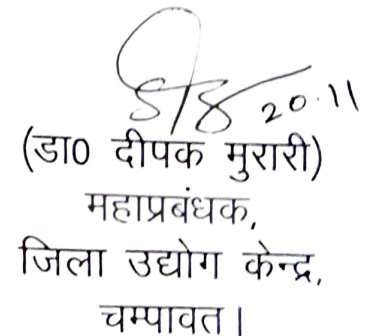 20.11
(डा0 दीपक मुरारी)
महाप्रबंधक,
जिला उद्योग केन्द्र,
चम्पावत।